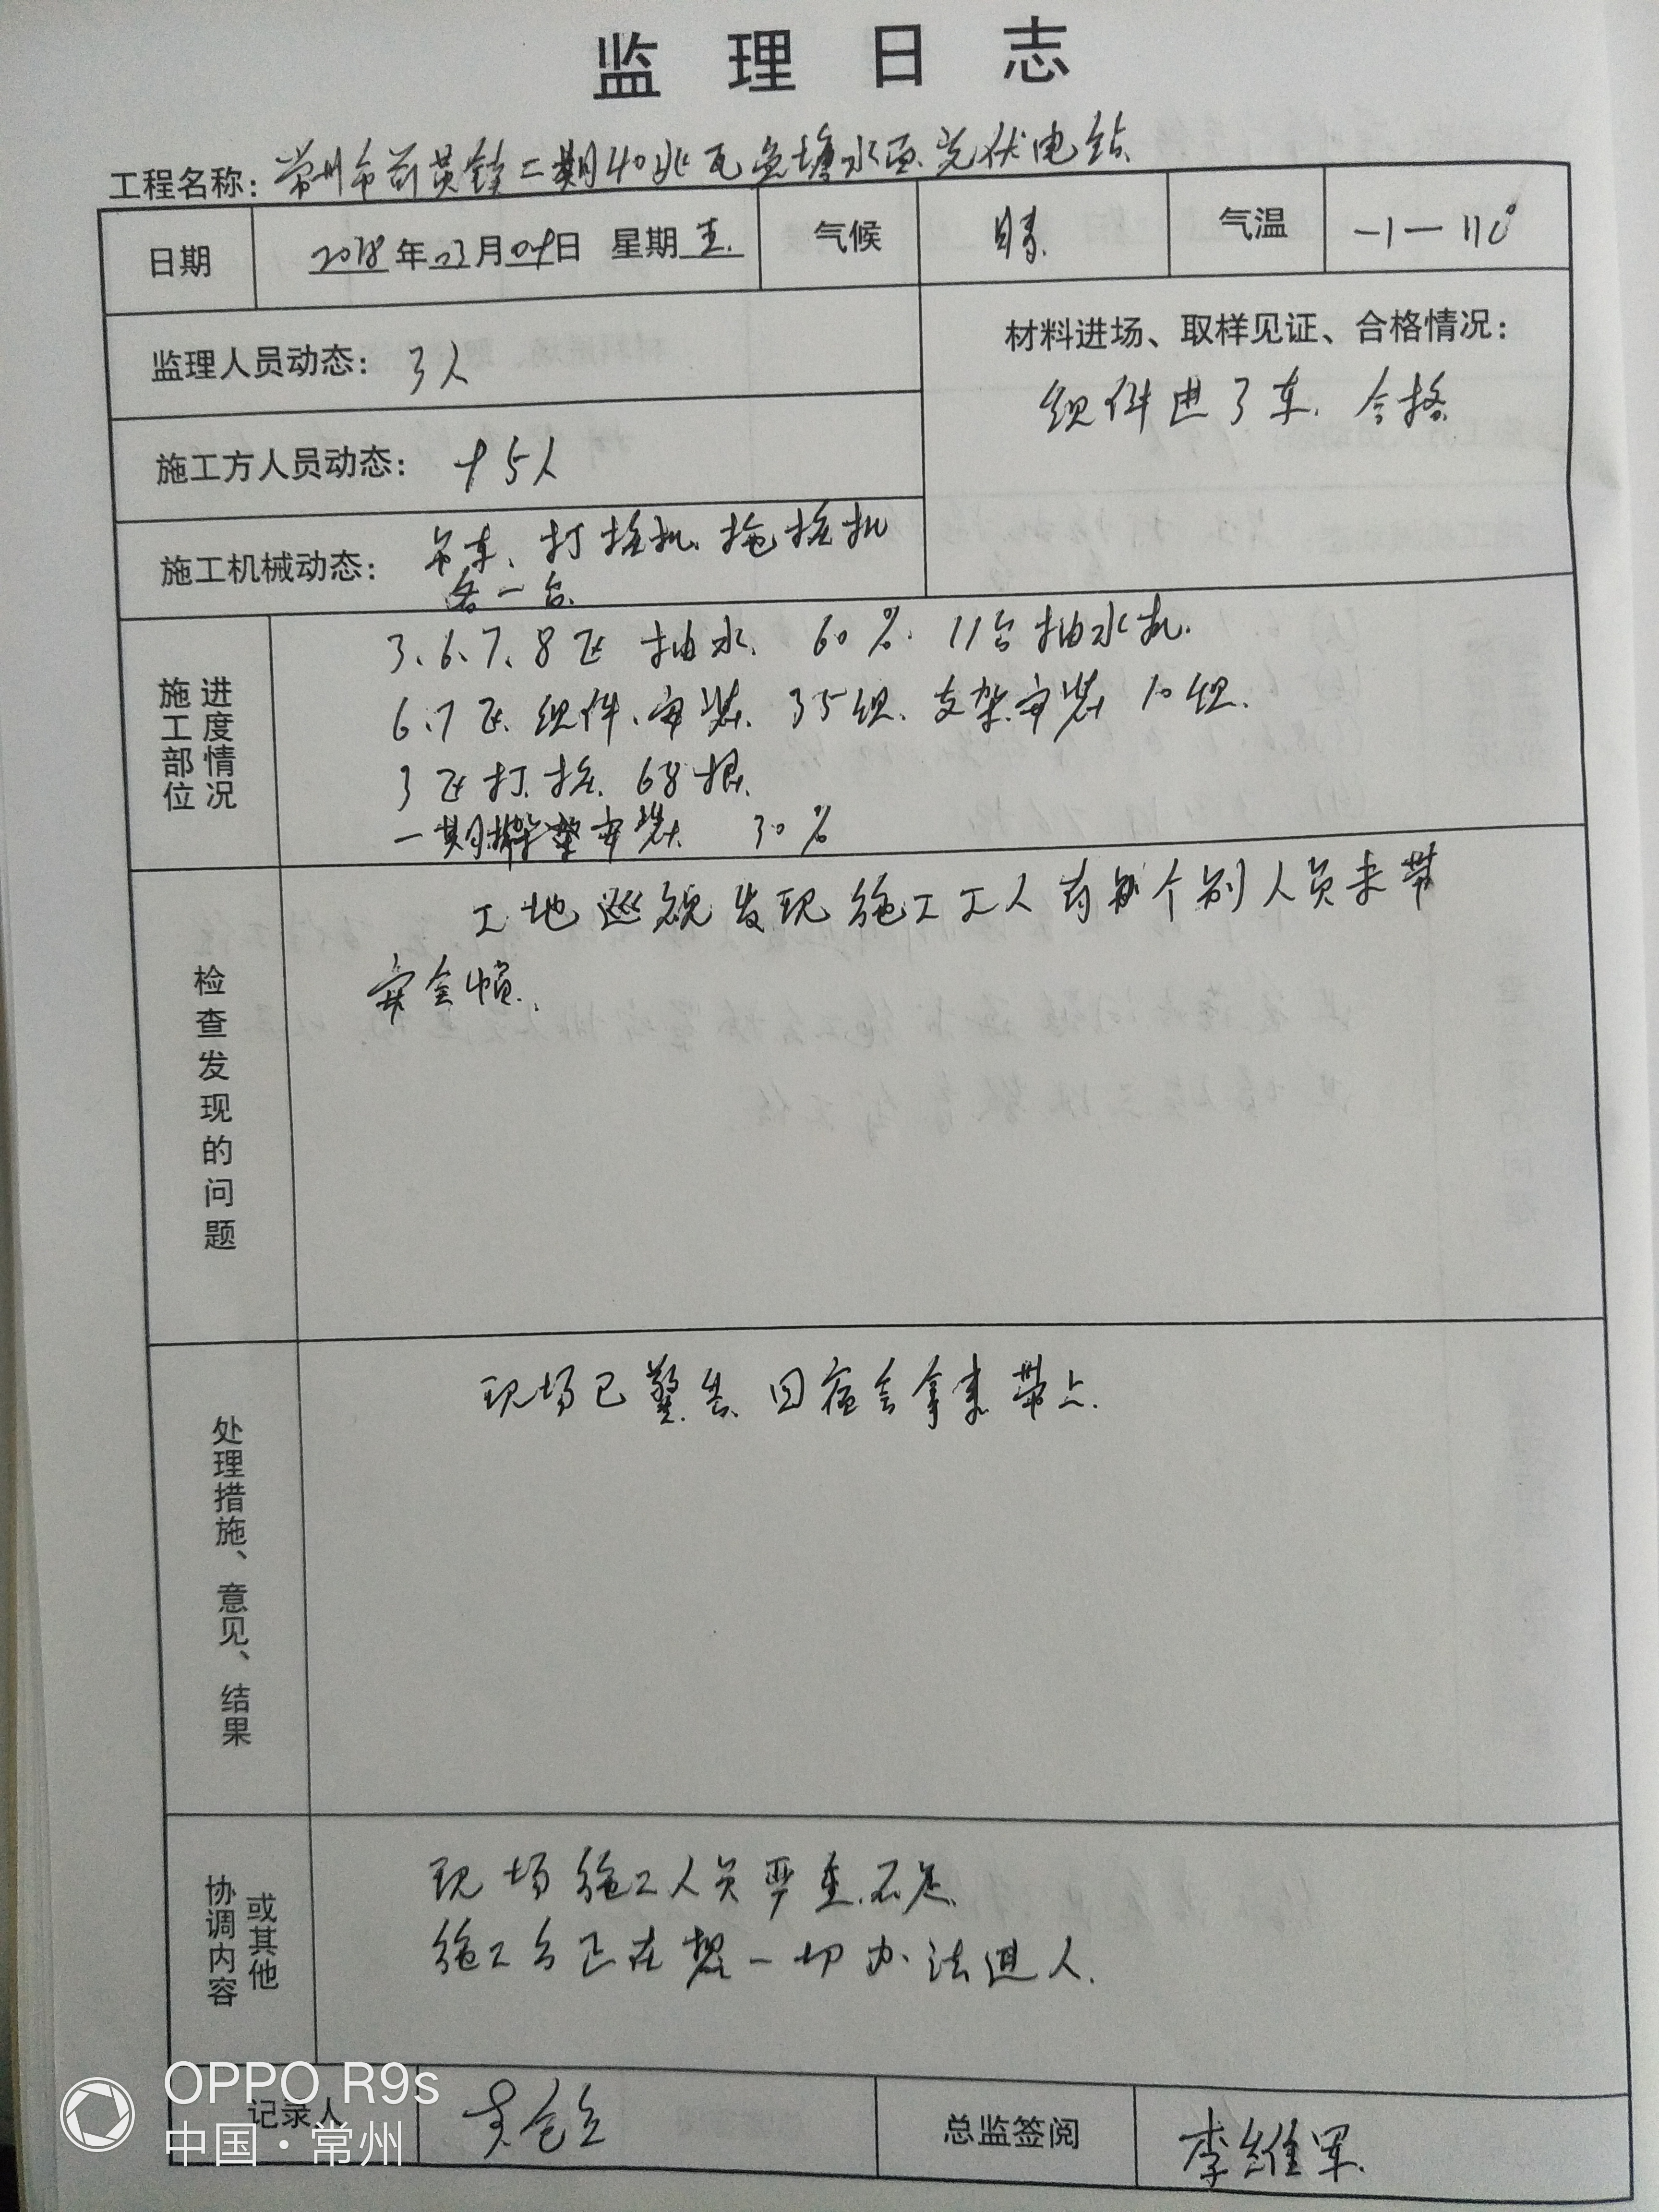 监理日志
工程名称：常州市前黄镇二期40兆瓦鱼塘水面光伏电站
日期 2018年03月09日 星期五 气候 晴 气温 -1—11C°
监理人员动态：3人
材料进场、取样见证、合格情况：
组件进3车、合格
施工方人员动态：45人
施工机械动态：吊车、打桩机、拖桩机
各一台
施工部位 进度情况
3、6、7、8区 抽水、60%、11台抽水机
6、7区组件、安装、35组、支架安装10组
3区打桩、68根
一期 安装 30%
检查发现的问题
工地巡视发现施工工人有 个别人员未带
安全帽
处理措施、意见、结果
现场已警告、回宿舍拿来带上
协调内容 或其他
现场施工人员严重不足
施工方正在想一切办法进人
记录人 总监签阅 李维军
OPPO R9s
中国·常州